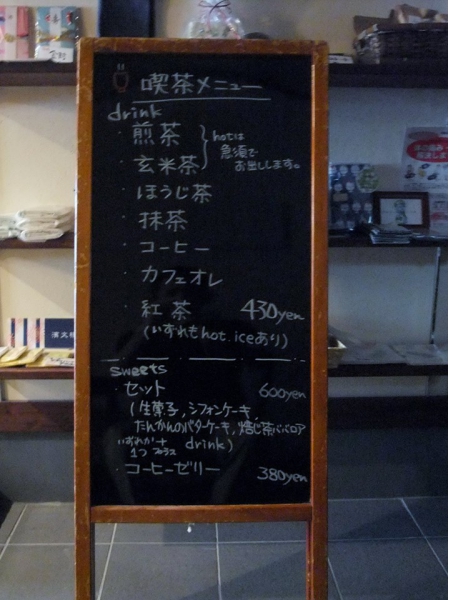 喫茶メニュー
drink
・煎茶
・玄米茶
hotは
急須で
お出しします。
・ほうじ茶
・抹茶
・コーヒー
・カフェオレ
・紅茶 430yen
(いずれもhot.iceあり)
sweets
・セット 600yen
(生菓子,シフォンケーキ,
たんかんのバターケーキ,焙じ茶ババロア
いずれか1つ + プラス drink)
・コーヒーゼリー 380yen